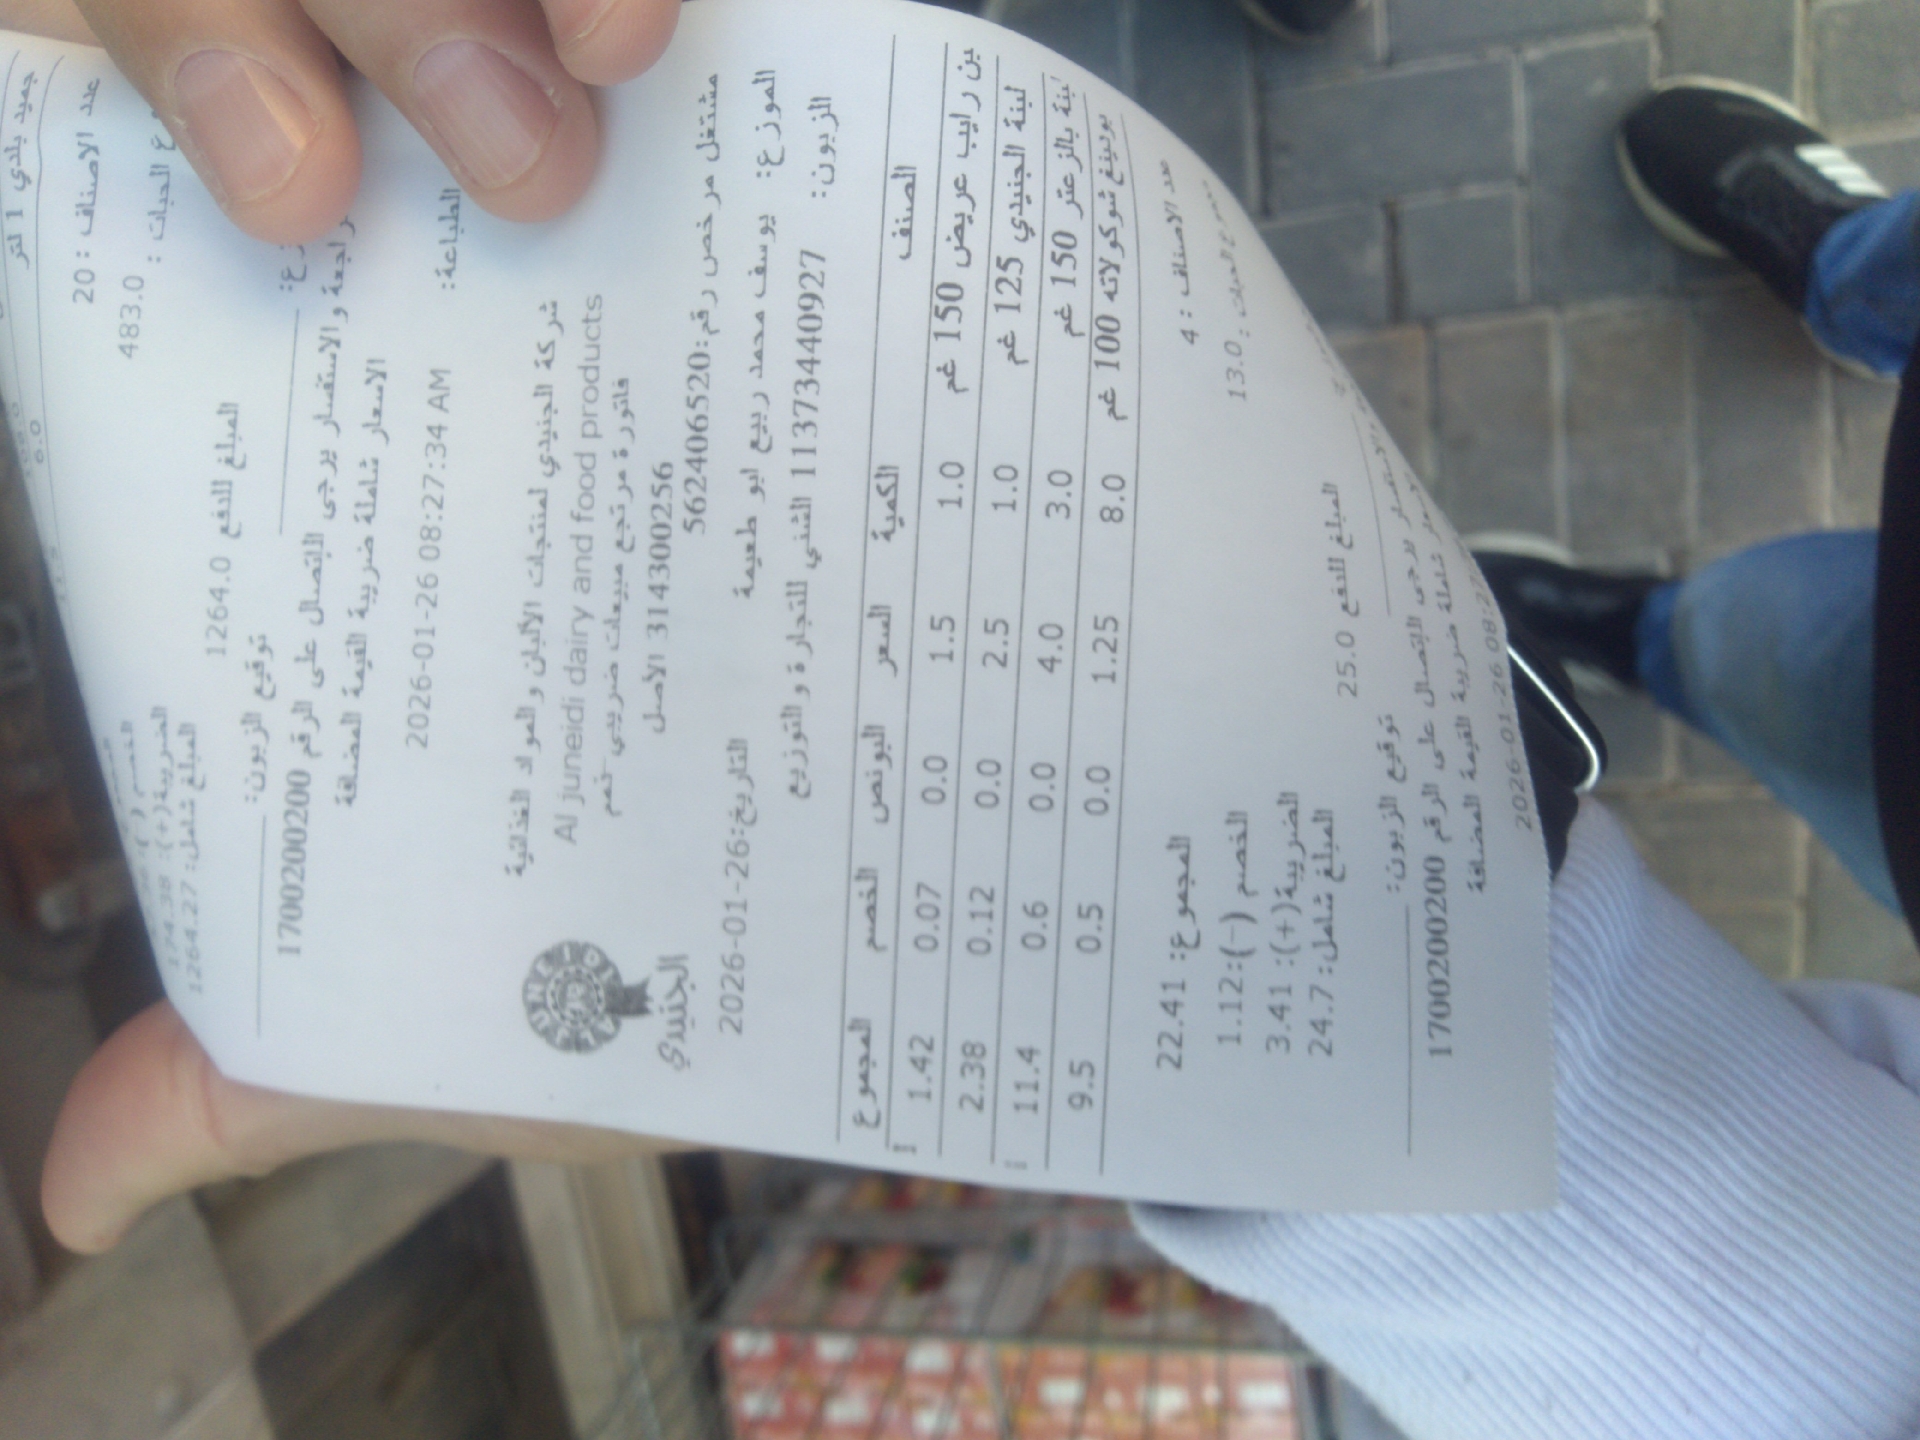 جميد بلدي 1 لتر
6.0
عدد الاصناف : 20
ع الحبات : 483.0
174.38 :(+)الضريبة
المبلغ شامل: 1264.27
المبلغ للدفع 1264.0
توقيع الزبون:
راجعة والاستفسار يرجى الاتصال على الرقم 1700200200
الاسعار شاملة ضريبة القيمة المضافة
الطباعة: 2026-01-26 08:27:34 AM
شركة الجنيدي لمنتجات الألبان والمواد الغذائية
Al juneidi dairy and food products
فاتورة مرتجع مبيعات ضريبي رقم
314300256 الاصل
AL JUNEIDI
الجنيدي
مشتغل مرخص رقم:562406520
التاريخ:2026-01-26
الموزع: يوسف محمد ربيع ابو طعيمة
الزبون: 11373440927 الثني للتجارة والتوزيع
الصنف الكمية السعر البونص الخصم المجموع
بن رايب عريض 150 غم 1.0 1.5 0.0 0.07 1.42
لبنة الجنيدي 125 غم 1.0 2.5 0.0 0.12 2.38
لبنة بالزعتر 150 غم 3.0 4.0 0.0 0.6 11.4
بودينغ شوكولاته 100 غم 8.0 1.25 0.0 0.5 9.5
عدد الاصناف : 4
مجموع الحبات : 13.0
المجموع: 22.41
الخصم (-):1.12
الضريبة(+): 3.41
المبلغ شامل: 24.7
المبلغ للدفع 25.0
توقيع الزبون:
يرجى الاتصال على الرقم 1700200200
شاملة ضريبة القيمة المضافة
2026-01-26 08:27